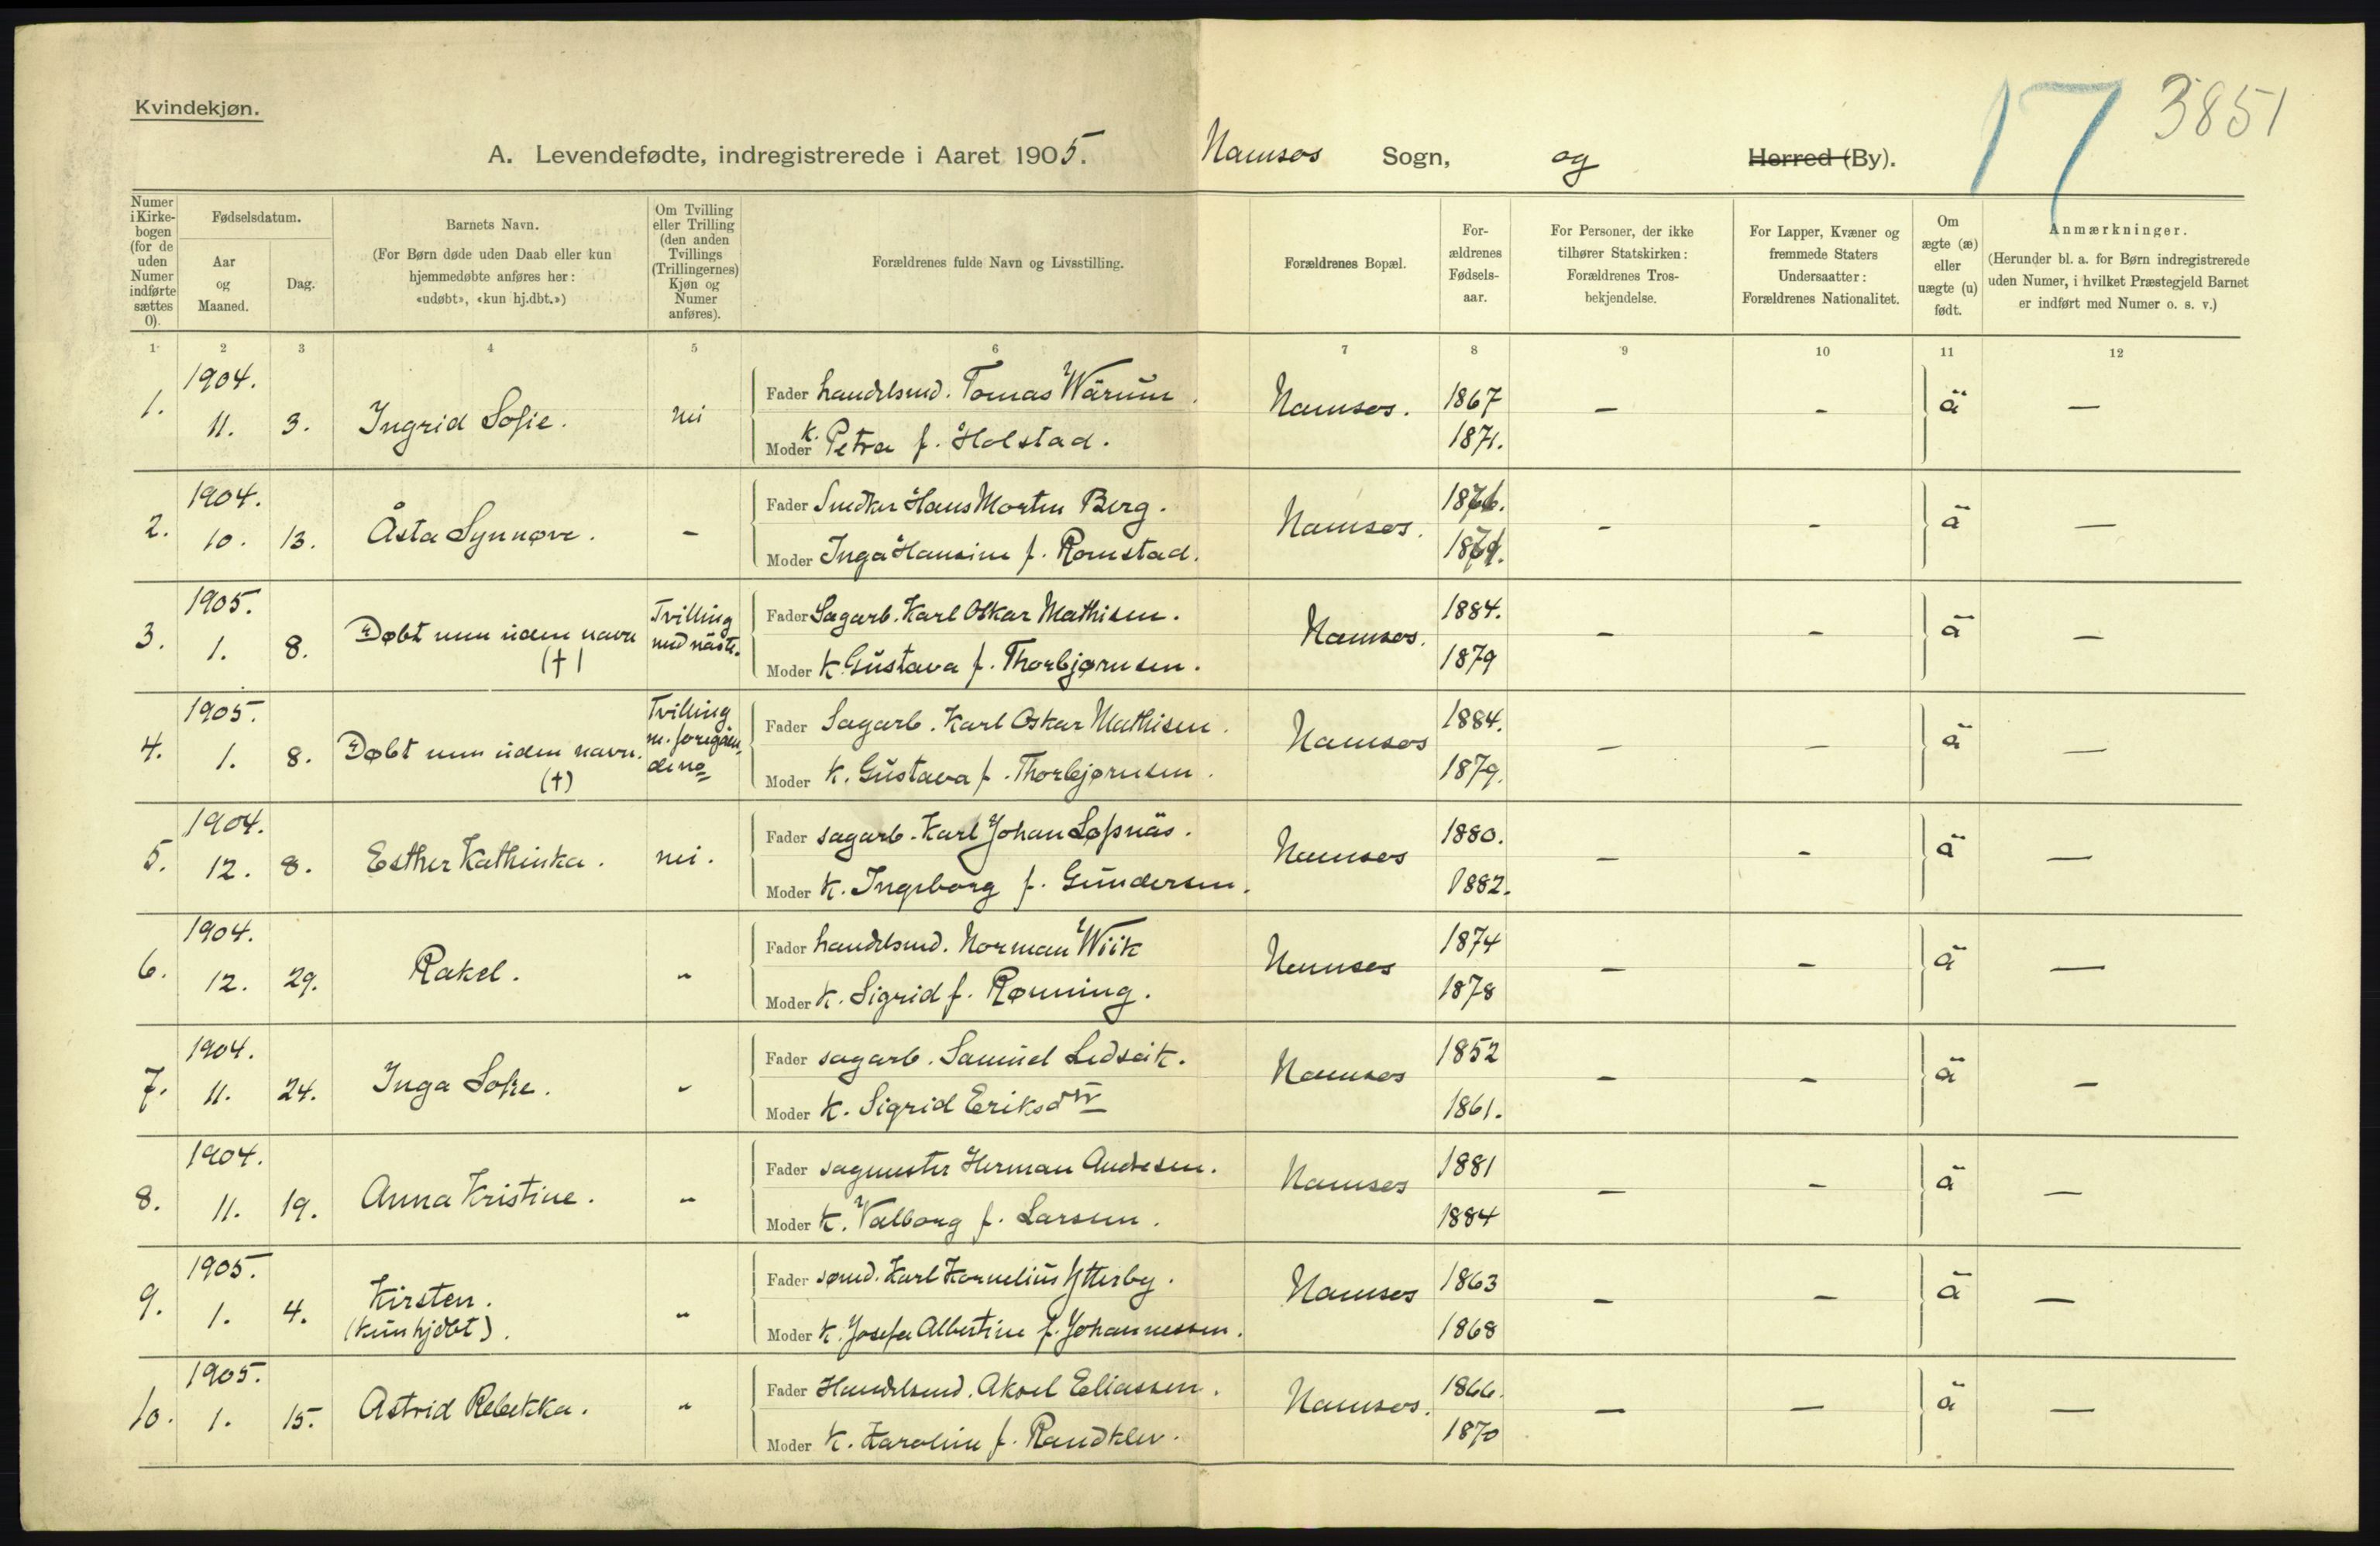 Kvindekjøn.
17 3851
A. Levendefødte, indregistrerede i Aaret 1905. Namsos Sogn, og Herred (By).
Numer i Kirkebogen (for de uden Numer indførte sættes 0).
Fødselsdatum.
Aar og Maaned.
Dag.
Barnets Navn.
(For Børn døde uden Daab eller kun hjemmedøbte anføres her: «udøbt», «kun hj.dbt.»)
Om Tvilling eller Trilling (den anden Tvillings (Trillingernes) Kjøn og Numer anføres).
Forældrenes fulde Navn og Livsstilling.
Forældrenes Bopæl.
Forældrenes Fødselsaar.
For Personer, der ikke tilhører Statskirken: Forældrenes Trosbekjendelse.
For Lapper, Kvæner og fremmede Staters Undersaatter: Forældrenes Nationalitet.
Om ægte (æ) eller uægte (u) født.
Anmærkninger.
(Herunder bl. a. for Børn indregistrerede uden Numer, i hvilket Præstegjeld Barnet er indført med Numer o. s. v.)
1 2 3 4 5 6 7 8 9 10 11 12
1. 1904. 11. 3. Ingrid Sofie. nei Fader handelsmd. Tomas Wärum. Namsos. 1867 – – ä –
Moder k. Petra f. Holstad. 1871.
2. 1904. 10. 13. Åsta Synnøve. – Fader Snedker Hans Morten Berg. Namsos. – – ä –
Moder Inga Hansine f. Romstad.
3. 1905. 1. 8. Døbt men uden navn (†) Tvilling med näste. Fader Sagarb. Karl Oskar Mathisen. Namsos. 1884. – – ä –
Moder k Gustava f. Thorbjørnsen. 1879
4. 1905. 1. 8. Døbt men uden navn. (†) Tvilling m. foregåen de no Fader Sagarb. Karl Oskar Mathisen. Namsos 1884. – – ä –
Moder k. Gustava f. Thorbjørnsen. 1879.
5. 1904. 12. 8. Esther Kathinka. nei. Fader sagarb. Karl Johan Løfsnäs. Namsos 1880. – – ä –
Moder k. Ingeborg f. Gundersen. 1882.
6. 1904. 12. 29. Rakel. – Fader handelsmd. Norman Wiik Namsos 1874 – – ä –
Moder k. Sigrid f. Rønning. 1878
7. 1904. 11. 24. Inga Sofie. – Fader sagarb. Samuel Ledseik. Namsos 1852 – – ä –
Moder k. Sigrid Eriksdtr 1861.
8. 1904. 11. 19. Anna Kristine. – Fader sagmester Herman Andresen. Namsos 1881 – – ä –
Moder k. Valborg f. Larsen. 1884
9. 1905. 1. 4. Kirsten. (kun hjdbt). – Fader sømd. Karl Kornelius Ytterby. Namsos 1863 – – ä –
Moder k. Josefa Albertine f. Johannessen. 1868
10. 1905. 1. 15. Astrid Rebekka. – Fader Handelsmd. Aksel Eliassen. Namsos. 1866. – – ä –
Moder k. Karoline f. Randklev. 1870